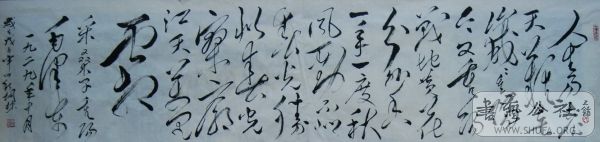 人生易老
天难老
岁岁重阳
今又重阳
战地黄花
分外香
一年一度秋
风劲不似
春光胜
似春光
寥廓
江天万里
霜
采桑子重阳
毛泽东
一九二九年十月
書灋公社
WWW.SHUFA.ORG